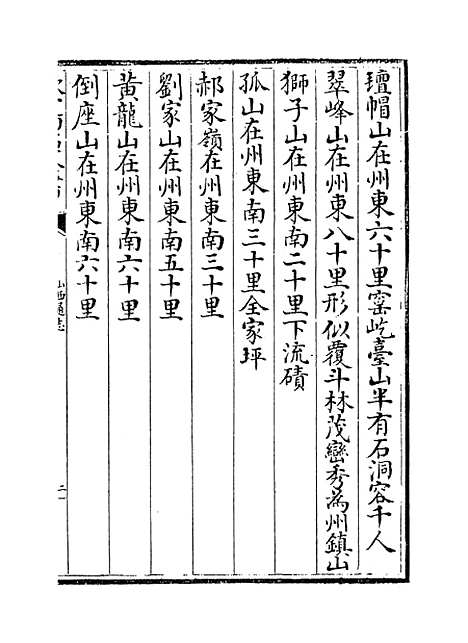 氊帽山在州東六十里窰屹臺山半有石洞容千人
翠峰山在州東八十里形似覆斗林茂巒秀為州鎮山
獅子山在州東南二十里下流磧
孤山在州東南三十里全家坪
郝家嶺在州東南三十里
劉家山在州東南五十里
黃龍山在州東南六十里
倒座山在州東南六十里
山西通志